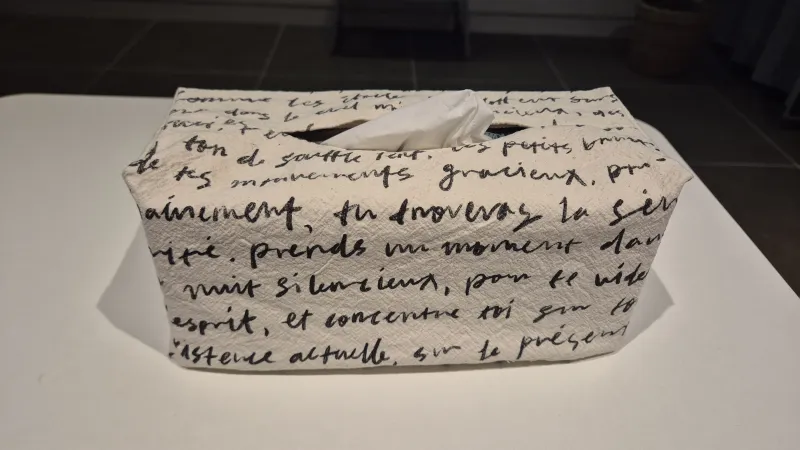 comme les étoiles
dans le ciel
ton de souffle lent. Les petits bruits
de tes mouvements gracieux, pro-
ainement, tu trouveras la séré
nité. prends un moment dan
nuit silencieux, pour te vide
esprit, et concentre toi sur to
istence actuelle, sur le présen